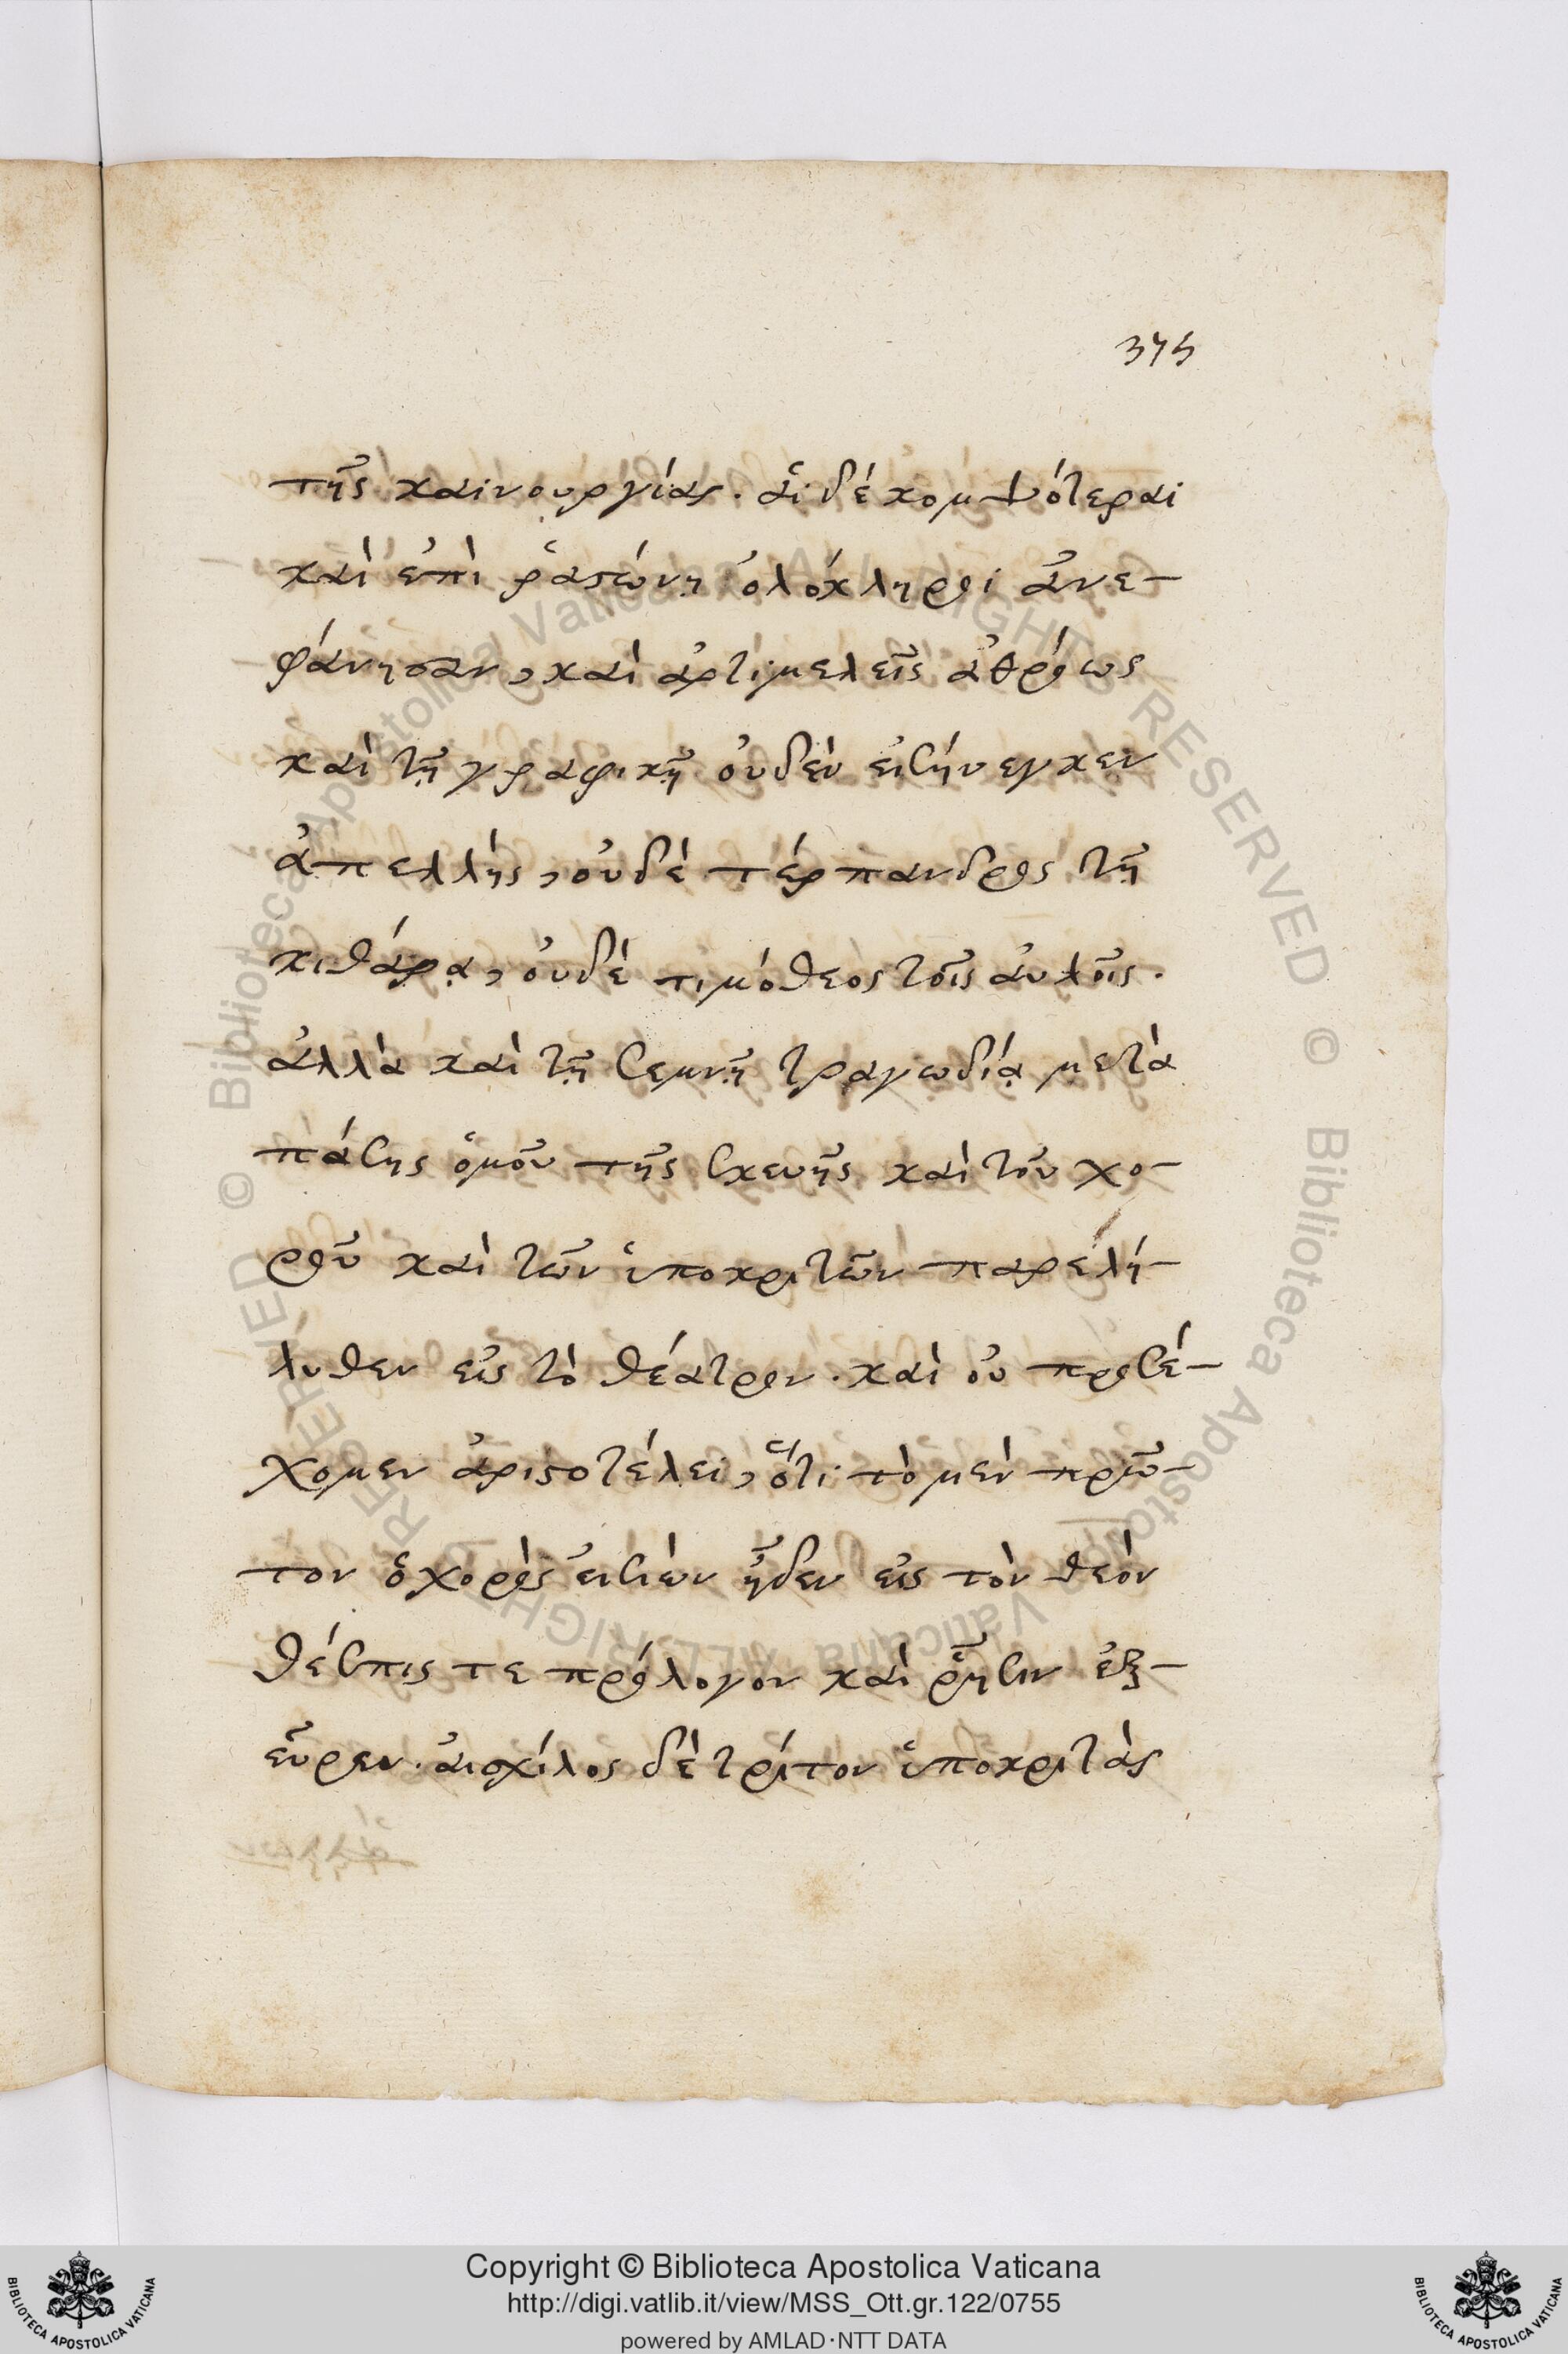 375
τῆς καινουργίας. ἁι δέ κομψότεραι
καὶ ἐπὶ ῥαστώνῃ ὁλόκληροι ἀνε-
φάνησαν, καὶ ἀρτιμελεῖς ἀθρόως
καὶ τῇ γραφικῇ οὐδὲν εἰσήνεγκεν
ἀπελλὴς, οὐδὲ τέρπανδρος τῇ
κιθάρᾳ, οὐδὲ τιμόθεος τοῖς ἀυλοῖς.
ἀλλὰ καὶ τῇ σεμνῇ τραγωδίᾳ μετὰ
πάσης ὁμοῦ τῆς σκευῆς καὶ τοῦ χο-
ροῦ καὶ τῶν ὑποκριτῶν παρελή-
λυθεν εἰς τὸ θέατρον. καὶ οὐ προσέ-
χομεν ἀριστοτέλει, ὅτι τὸ μὲν πρῶ-
τον ὁ χορὸς εἰσιὼν ᾖδεν εἰς τὸν θεὸν
θέσπις τε πρόλογον καὶ ῥῆσιν ἐξ-
εῦρεν. ἀισχίλος δὲ τρίτον ὑποκριτὰς
Copyright © Biblioteca Apostolica Vaticana
http://digi.vatlib.it/view/MSS_Ott.gr.122/0755
powered by AMLAD·NTT DATA
BIBLIOTECA APOSTOLICA VATICANA
BIBLIOTECA APOSTOLICA VATICANA
© Biblioteca Apostolica Vaticana ALL RIGHTS RESERVED © Biblioteca Apostolica Vaticana ALL RIGHTS RESERVED